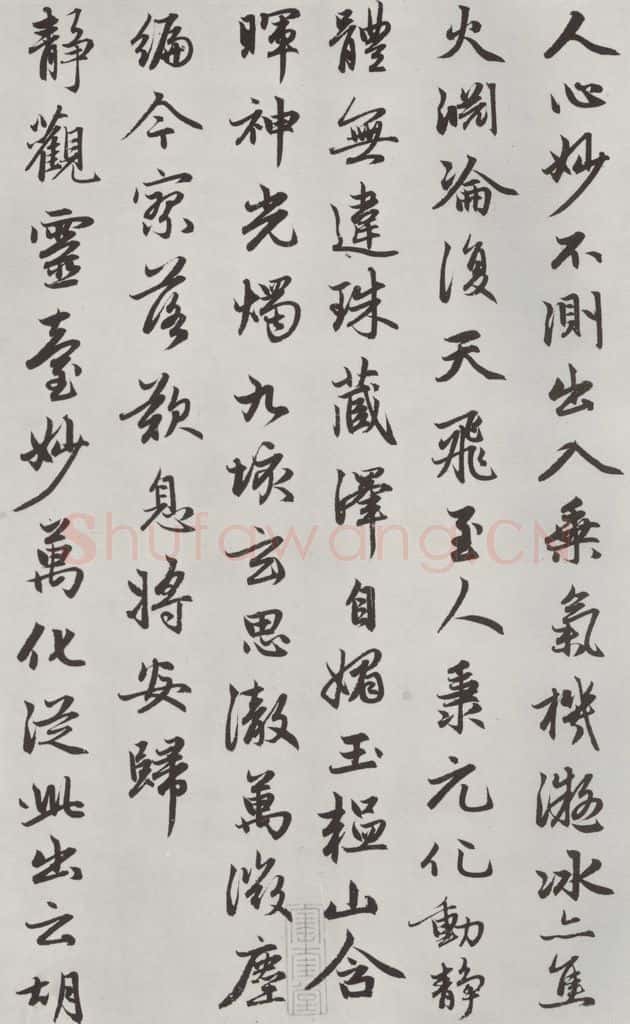 人心妙不測出入乘氣機凝冰亦焦
火淵淪復天飛至人秉元化動靜
體無違珠藏澤自媚玉韞山含
暉神光燭九垓玄思徹萬微塵
編今寥落歎息將安歸
靜觀靈臺妙萬化從此出云胡
Shufawang.CN